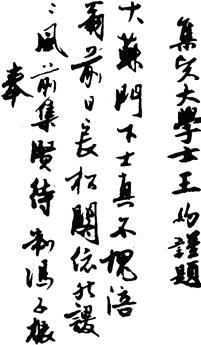 集賢大學士王約謹題
大蘇門下士真不愧涪
翁前日長松閣依然謖
〻風前集賢待制馮子振
奉